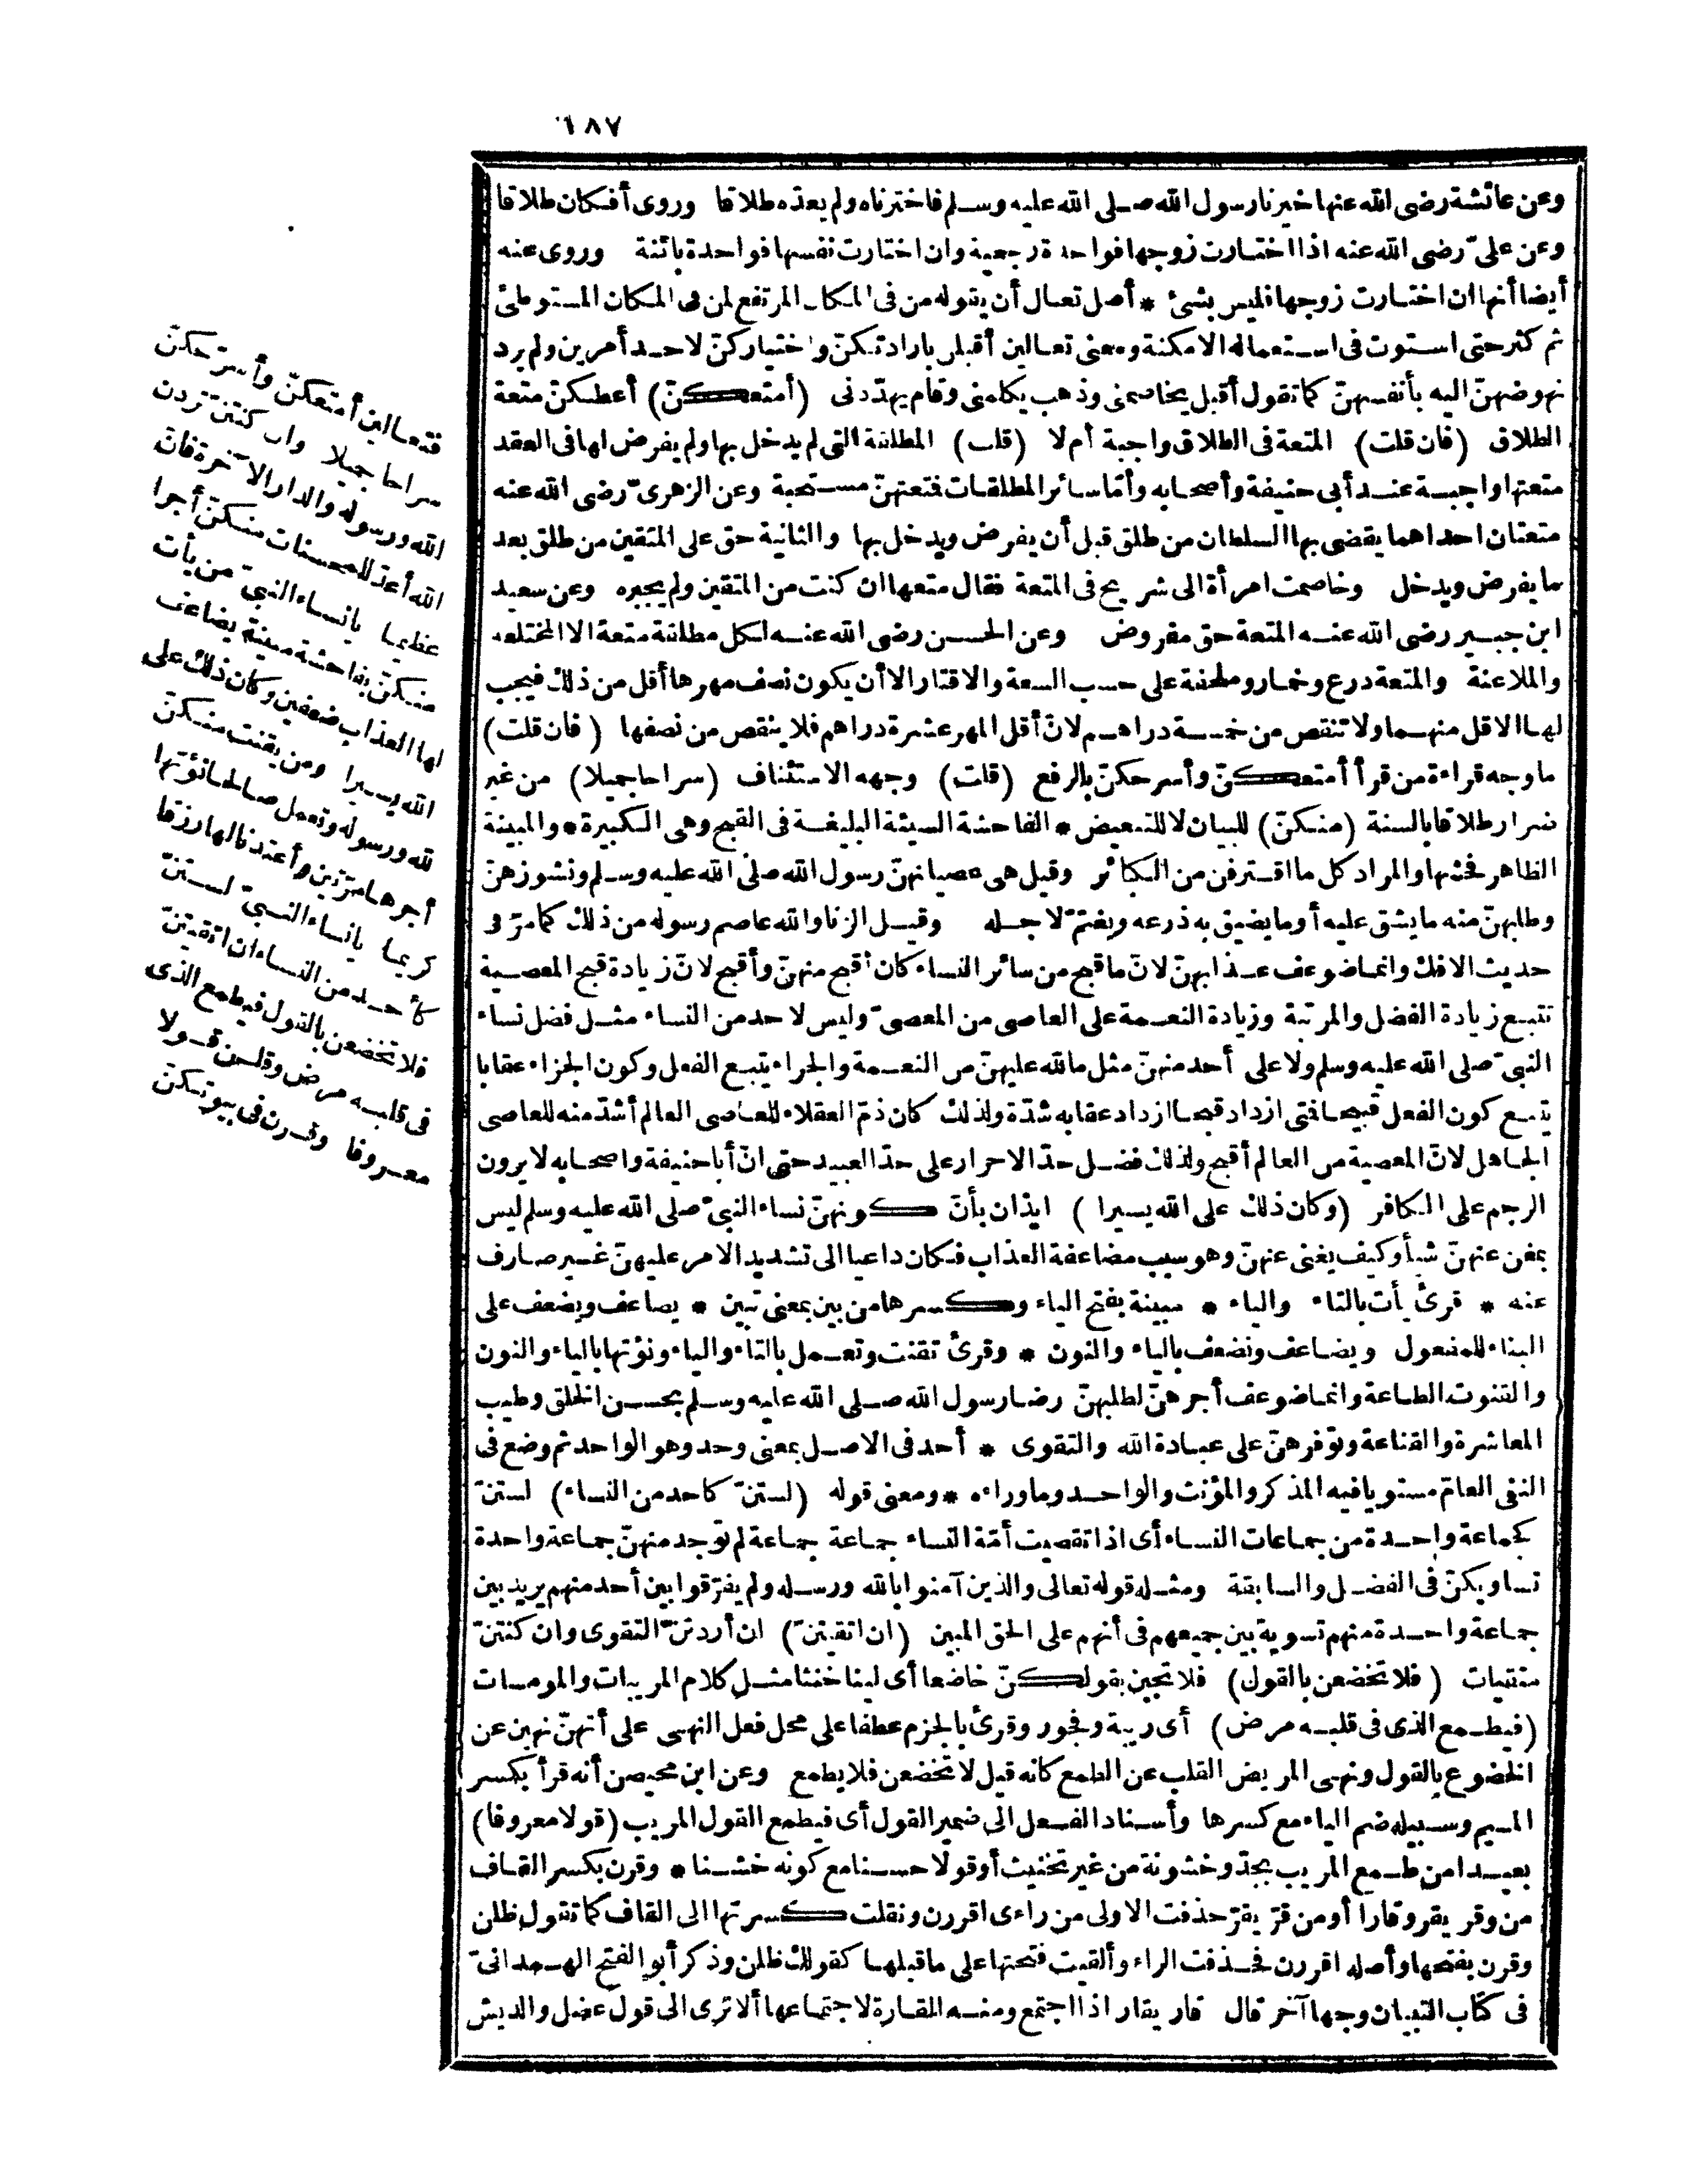 ٦٨٧
وعن عائشة رضى الله عنها خيرنا رسول الله صلى الله عليه وسلم فاخترناه ولم يعده طلاقا وروى أفكان طلاقا
وعن علىّ رضى الله عنه اذا اختارت زوجها فواحدة رجعية وان اختارت نفسها فواحدة بائنة وروى عنه
أيضا أنها ان اختارت زوجها فليس بشئ * أصل تعال أن يقوله من فى المكان المرتفع لمن فى المكان المستوطئ
ثم كثر حتى استوت فى استعماله الامكنة ومعنى تعالين أقبلن بارادتكنّ واختياركنّ لاحد أمرين ولم يرد
نهوضهنّ اليه بأنفسهنّ كما تقول أقبل يخاصمنى وذهب يكلمنى وقام يهدّدنى (أمتعكنّ) أعطكنّ متعة
الطلاق (فان قلت) المتعة فى الطلاق واجبة أم لا (قلت) المطلقة التى لم يدخل بها ولم يفرض لها فى العقد
متعتها واجبة عند أبى حنيفة وأصحابه وأمّا سائر المطلقات فمتعتهنّ مستحبة وعن الزهرىّ رضى الله عنه
متعتان احداهما يقضى بها السلطان من طلق قبل أن يفرض ويدخل بها والثانية حق على المتقين من طلق بعد
ما يفرض ويدخل وخاصمت امرأة الى شريح فى المتعة فقال متعها ان كنت من المتقين ولم يجبره وعن سعيد
ابن جبير رضى الله عنه المتعة حق مفروض وعن الحسن رضى الله عنه لكل مطلقة متعة الا المختلعة
والملاعنة والمتعة درع وخمار وملحفة على حسب السعة والاقتار الا أن يكون نصف مهرها أقل من ذلك فيجب
لها الاقل منهما ولا تنقص من خمسة دراهم لانّ أقل المهر عشرة دراهم فلا ينقص من نصفها (فان قلت)
ما وجه قراءة من قرأ أمتعكنّ وأسرحكنّ بالرفع (قلت) وجهه الاستئناف (سراحا جميلا) من غير
ضرار طلاقا بالسنة (منكنّ) للبيان لا للتبعيض * الفاحشة السيئة البليغة فى القبح وهى الكبيرة * والمبينة
الظاهر فحشها والمراد كل ما اقترفن من الكبائر وقيل هى عصيانهنّ رسول الله صلى الله عليه وسلم ونشوزهنّ
وطلبهنّ منه ما يشق عليه أو ما يضيق به ذرعه ويغتمّ لاجله وقيل الزنا والله عاصم رسوله من ذلك كما مرّ فى
حديث الافك وانما ضوعف عذابهنّ لانّ ما قبح من سائر النساء كان أقبح منهنّ وأقبح لانّ زيادة قبح المعصية
تتبع زيادة الفضل والمرتبة وزيادة النعمة على العاصى من المعصىّ وليس لاحد من النساء مثل فضل نساء
النبىّ صلى الله عليه وسلم ولا على أحد منهنّ مثل ما لله عليهنّ من النعمة والجزاء يتبع الفعل وكون الجزاء عقابا
يتبع كون الفعل قبيحا فمتى ازداد قبحا ازداد عقابه شدّة ولذلك كان ذمّ العقلاء للعاصى العالم أشدّ منه للعاصى
الجاهل لانّ المعصية من العالم أقبح ولذلك فضل حدّ الاحرار على حدّ العبيد حتى انّ أبا حنيفة واصحابه لا يرون
الرجم على الكافر (وكان ذلك على الله يسيرا) ايذان بأنّ كونهنّ نساء النبىّ صلى الله عليه وسلم ليس
بمغن عنهنّ شيأ وكيف يغنى عنهنّ وهو سبب مضاعفة العذاب فكان داعيا الى تشديد الامر عليهنّ غير صارف
عنه * قرئ يأت بالتاء والياء * مبينة بفتح الياء وكسرها من بين بمعنى تبين * يضاعف ويضعف على
البناء للمفعول ويضاعف ونضعف بالياء والنون * وقرئ تقنت وتعمل بالتاء والياء ونؤتها بالياء والنون
والقنوت الطاعة وانما ضوعف أجرهنّ لطلبهنّ رضا رسول الله صلى الله عليه وسلم بحسن الخلق وطيب
المعاشرة والقناعة وتوفرهنّ على عبادة الله والتقوى * أحد فى الاصل بمعنى وحد وهو الواحد ثم وضع فى
النفى العامّ مستويا فيه المذكر والمؤنث والواحد وما وراءه * ومعنى قوله (لستنّ كاحد من النساء) لستنّ
كجماعة واحدة من جماعات النساء أى اذا تقصيت أمّة النساء جماعة جماعة لم توجد منهنّ جماعة واحدة
تساويكنّ فى الفضل والسابقة ومثله قوله تعالى والذين آمنوا بالله ورسله ولم يفرّقوا بين أحد منهم يريد بين
جماعة واحدة منهم تسوية بين جميعهم فى أنهم على الحق المبين (ان اتقيتنّ) ان أردتنّ التقوى وان كنتنّ
متقيات (فلا تخضعن بالقول) فلا تجبن بقولكنّ خاضعا أى لينا خنثا مثل كلام المريبات والمومسات
(فيطمع الذى فى قلبه مرض) أى ريبة وفجور وقرئ بالجزم عطفا على محل فعل النهى على أنهنّ نهين عن
الخضوع بالقول ونهى المريض القلب عن الطمع كانه قيل لا تخضعن فلا يطمع وعن ابن محيصن أنه قرأ بكسر
الميم وسبيله ضم الياء مع كسرها وأسناد الفعل الى ضمير القول أى فيطمع القول المريب (قولا معروفا)
بعيدا من طمع المريب بجدّ وخشونة من غير تخنيث أو قولا حسنا مع كونه خشنا * وقرن بكسر القاف
من وقر يقر وقارا أو من قرّ يقرّ حذفت الاولى من راءى اقررن ونقلت كسرتها الى القاف كما تقول ظلن
وقرن بفتحها وأصله اقررن فحذفت الراء وألقيت فتحتها على ما قبلها كقولك ظلن وذكر أبو الفتح الهمدانىّ
فى كتاب التبيان وجها آخر قال قار يقار اذا اجتمع ومنه القارة لاجتماعها ألا ترى الى قول عضل والديش
فتعالين أمتعكنّ وأسرّحكنّ
سراحا جميلا وان كنتنّ تردن
الله ورسوله والدار الآخرة فان
الله أعدّ للمحسنات منكنّ أجرا
عظيما يانساء النبىّ من يأت
منكنّ بفاحشة مبينة يضاعف
لها العذاب ضعفين وكان ذلك على
الله يسيرا ومن يقنت منكنّ
لله ورسوله وتعمل صالحا نؤتها
أجرها مرّتين وأعتدنا لها رزقا
كريما يانساء النبىّ لستنّ
كأحد من النساء ان اتقيتنّ
فلا تخضعن بالقول فيطمع الذى
فى قلبه مرض وقلن قولا
معروفا وقرن فى بيوتكنّ